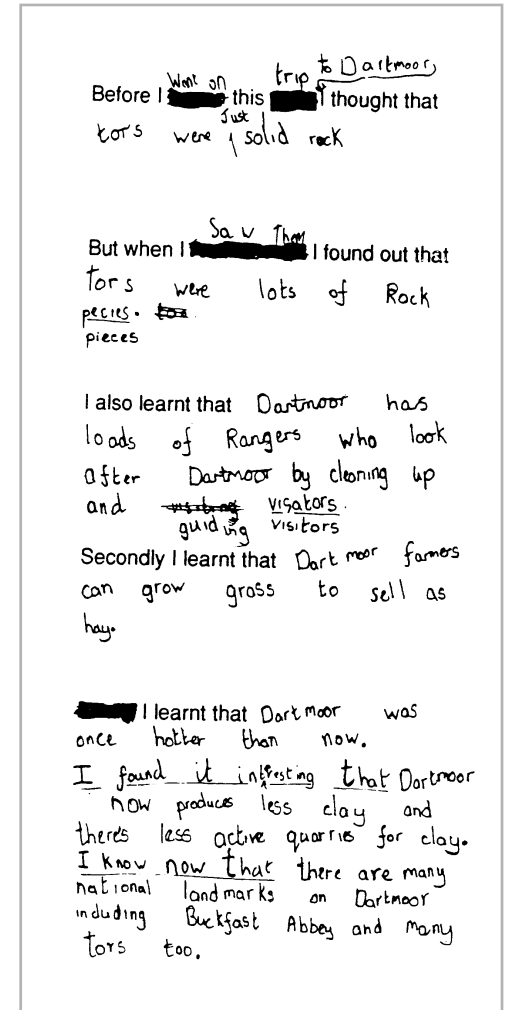 Went on trip to Dartmoor
Before I this I thought that
Just
tors were solid rock
Saw Them
But when I I found out that
tors were lots of Rock
pecies.
pieces
I also learnt that Dartmoor has
loads of Rangers who look
after Dartmoor by cleaning up
and visiting visators.
guiding visitors
Secondly I learnt that Dartmoor farmers
can grow grass to sell as
hay.
I learnt that Dartmoor was
once hotter than now.
I found it intresting that Dartmoor
now produces less clay and
there's less active quarries for clay.
I know now that there are many
national landmarks on Dartmoor
including Buckfast Abbey and many
tors too.